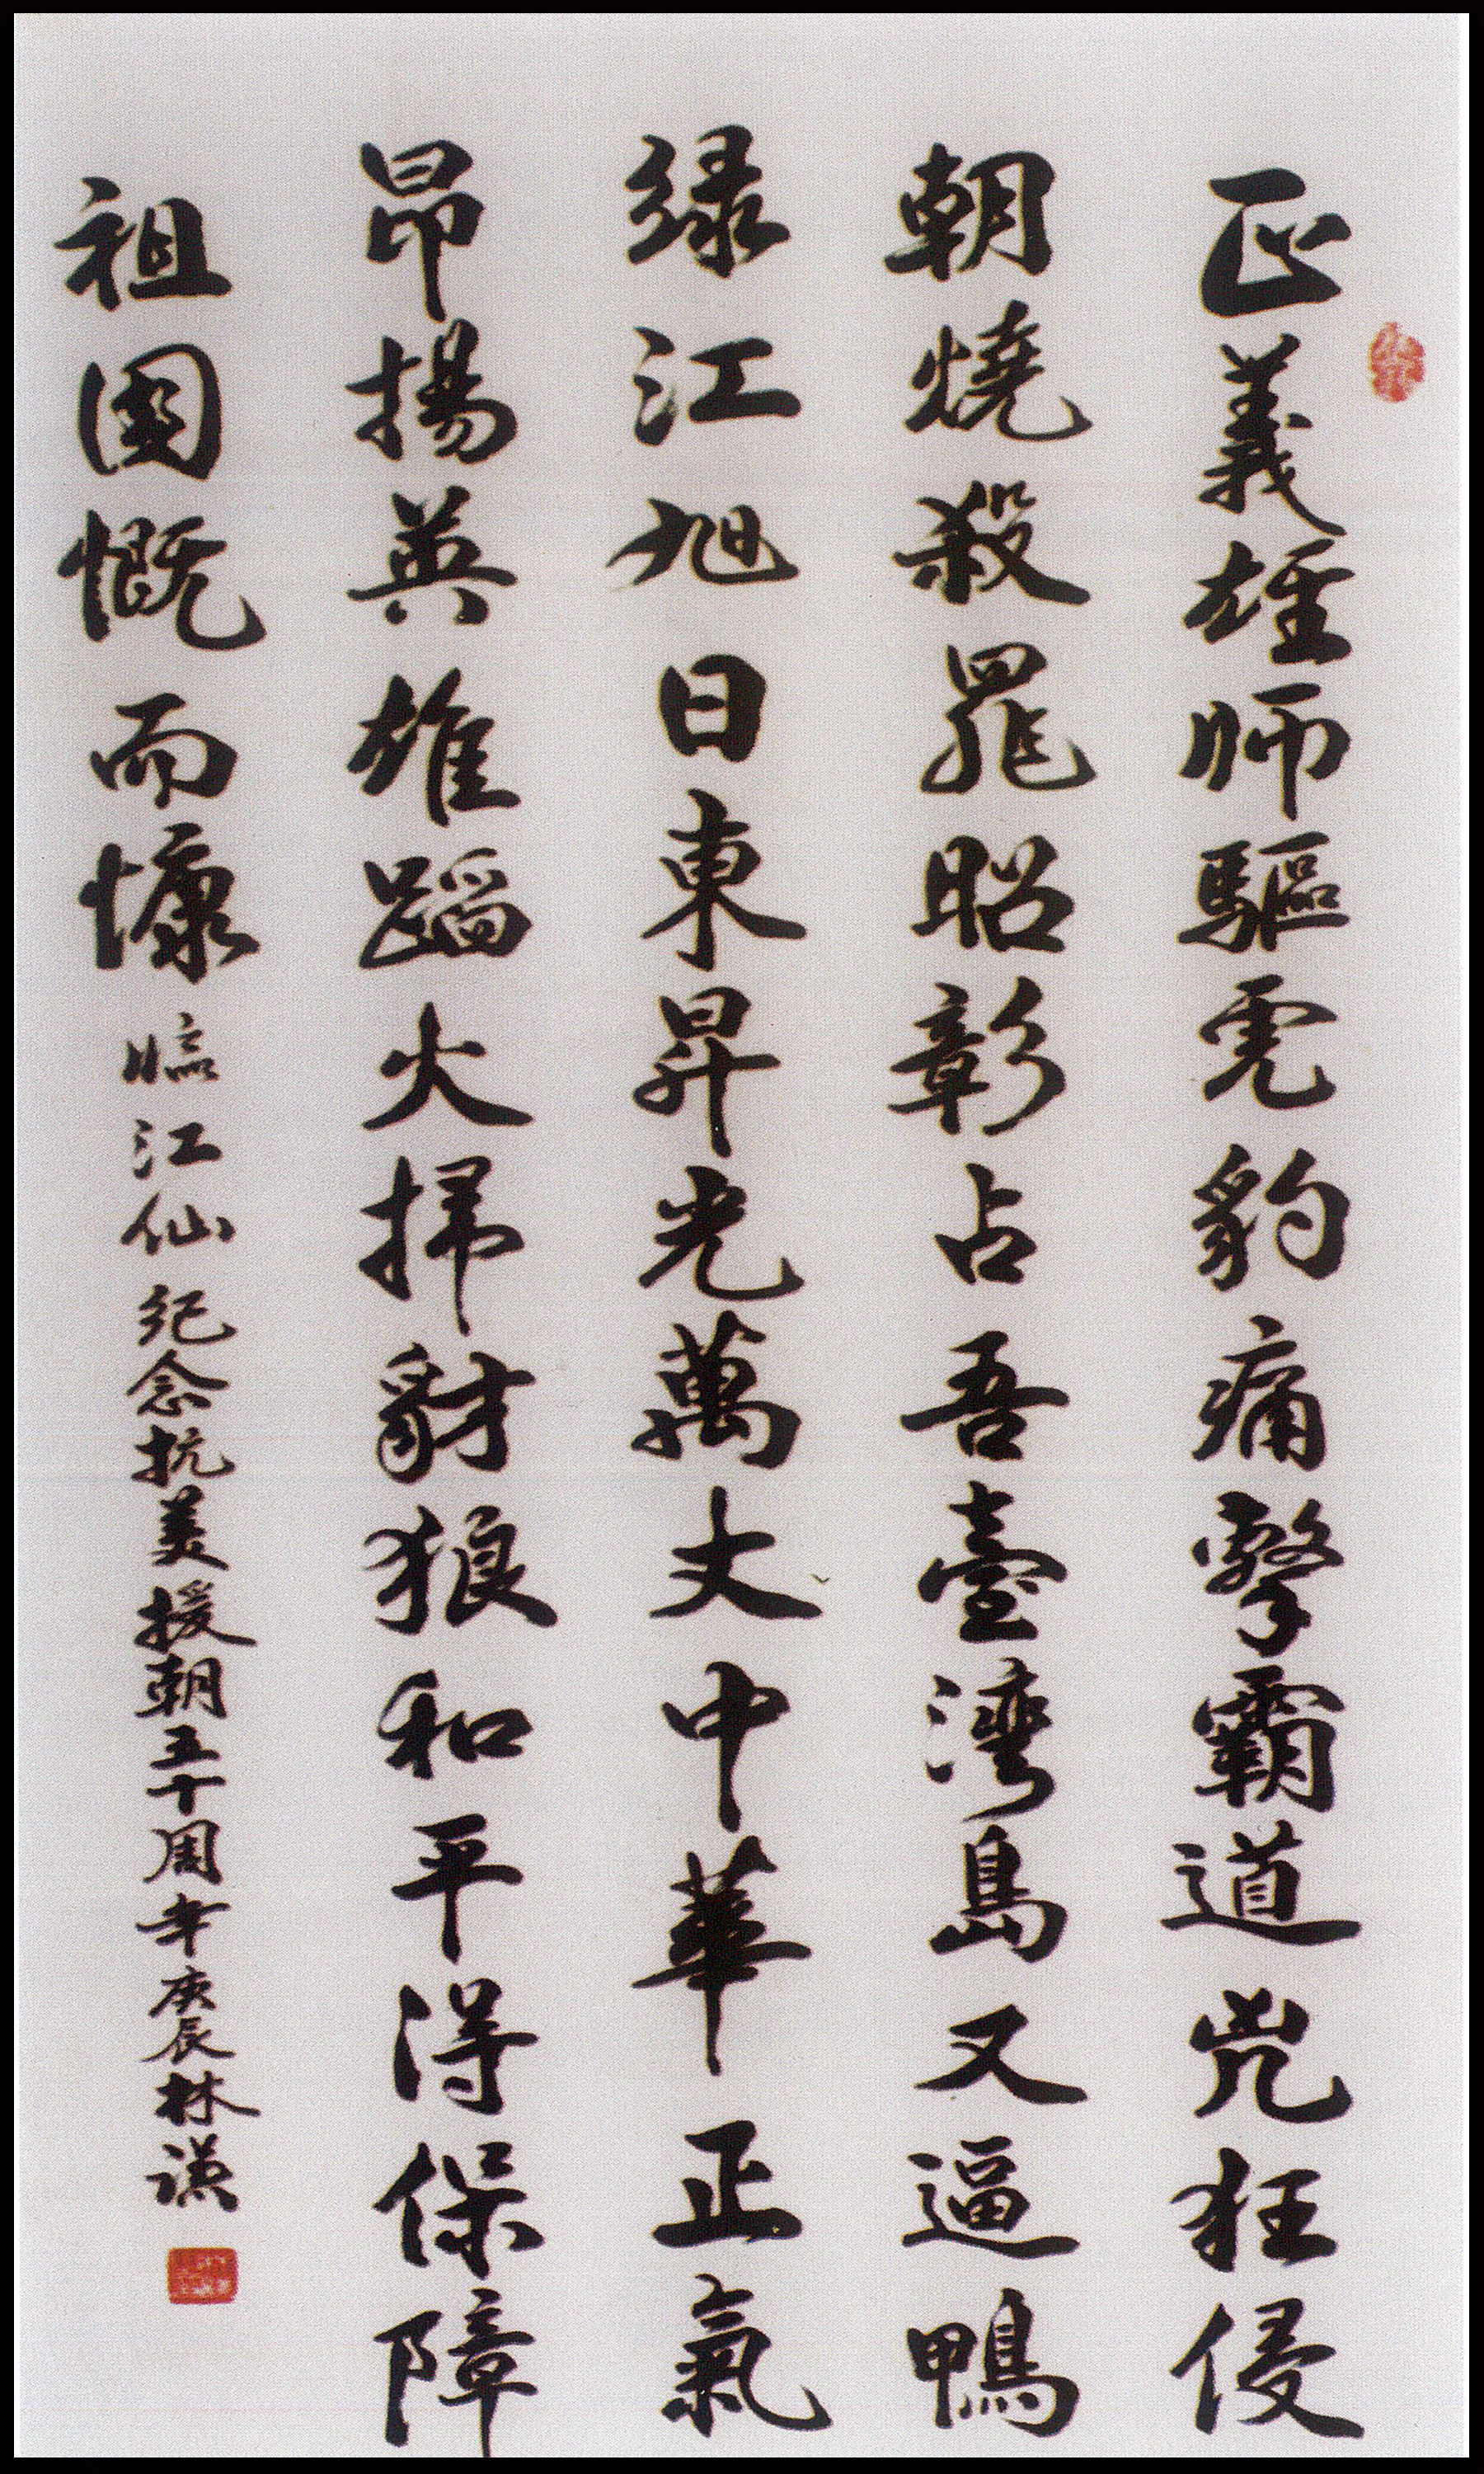 正義雄師驅虎豹痛擊霸道兇狂侵
朝燒殺罪昭彰占吾臺灣島又逼鴨
緑江旭日東昇光萬丈中華正氣
昂揚英雄蹈火掃豺狼和平得保障
祖國慨而慷 臨江仙 纪念抗美援朝五十周年 庚辰 林谦